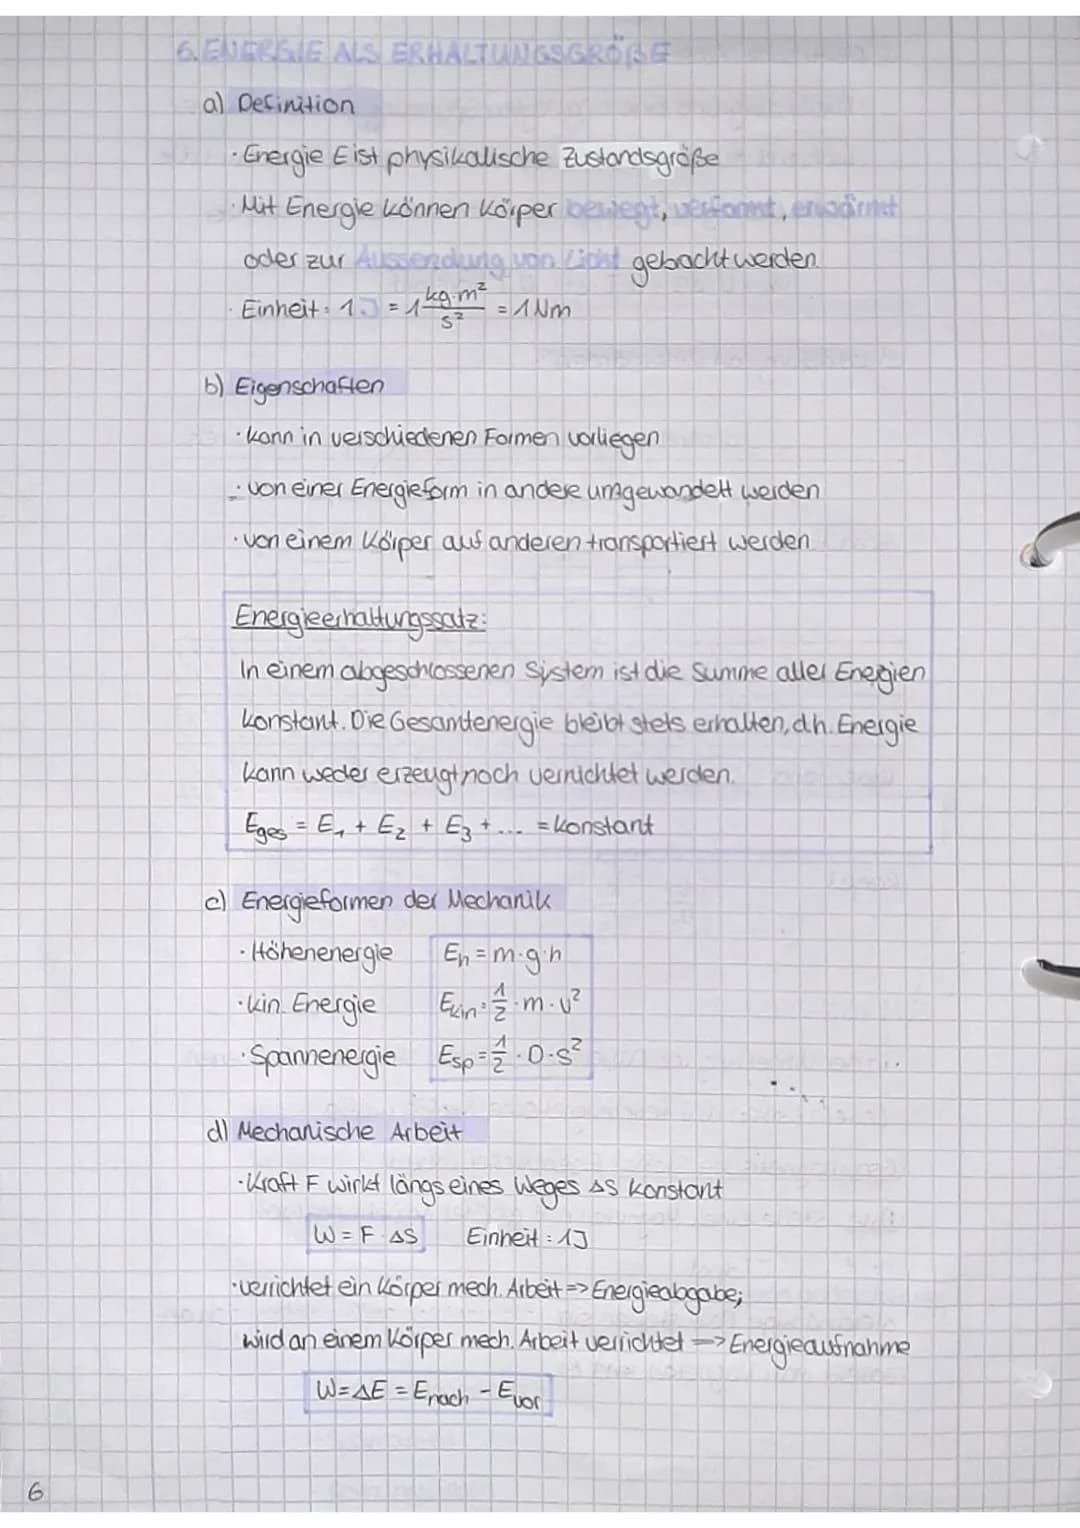 6. ENERGIE ALS ERHALTUNGSGRÖßE
a) Definition
· Energie E ist physikalische Zustandsgröße
· Mit Energie können Körper bewegt, verformt, erwärmt
oder zur Aussendung von Licht gebracht werden.
· Einheit: 1J = 1 kg·m²/s² = 1Nm
b) Eigenschaften
· kann in verschiedenen Formen vorliegen
· von einer Energieform in andere umgewandelt werden
· von einem Körper auf anderen transportiert werden
Energieerhaltungssatz:
In einem abgeschlossenen System ist die Summe aller Energien
konstant. Die Gesamtenergie bleibt stets erhalten, d.h. Energie
kann weder erzeugt noch vernichtet werden.
Eges = E₁ + E₂ + E₃ + ... = konstant
c) Energieformen der Mechanik
· Höhenenergie Eh = m·g·h
· kin. Energie Ekin = 1/2 · m · v²
· Spannenergie Esp = 1/2 · D · s²
d) Mechanische Arbeit
· Kraft F wirkt längs eines Weges Δs konstant
W = F · Δs Einheit: 1J
· verrichtet ein Körper mech. Arbeit => Energieabgabe;
wird an einem Körper mech. Arbeit verrichtet => Energieaufnahme
W = ΔE = Enach - Evor
6